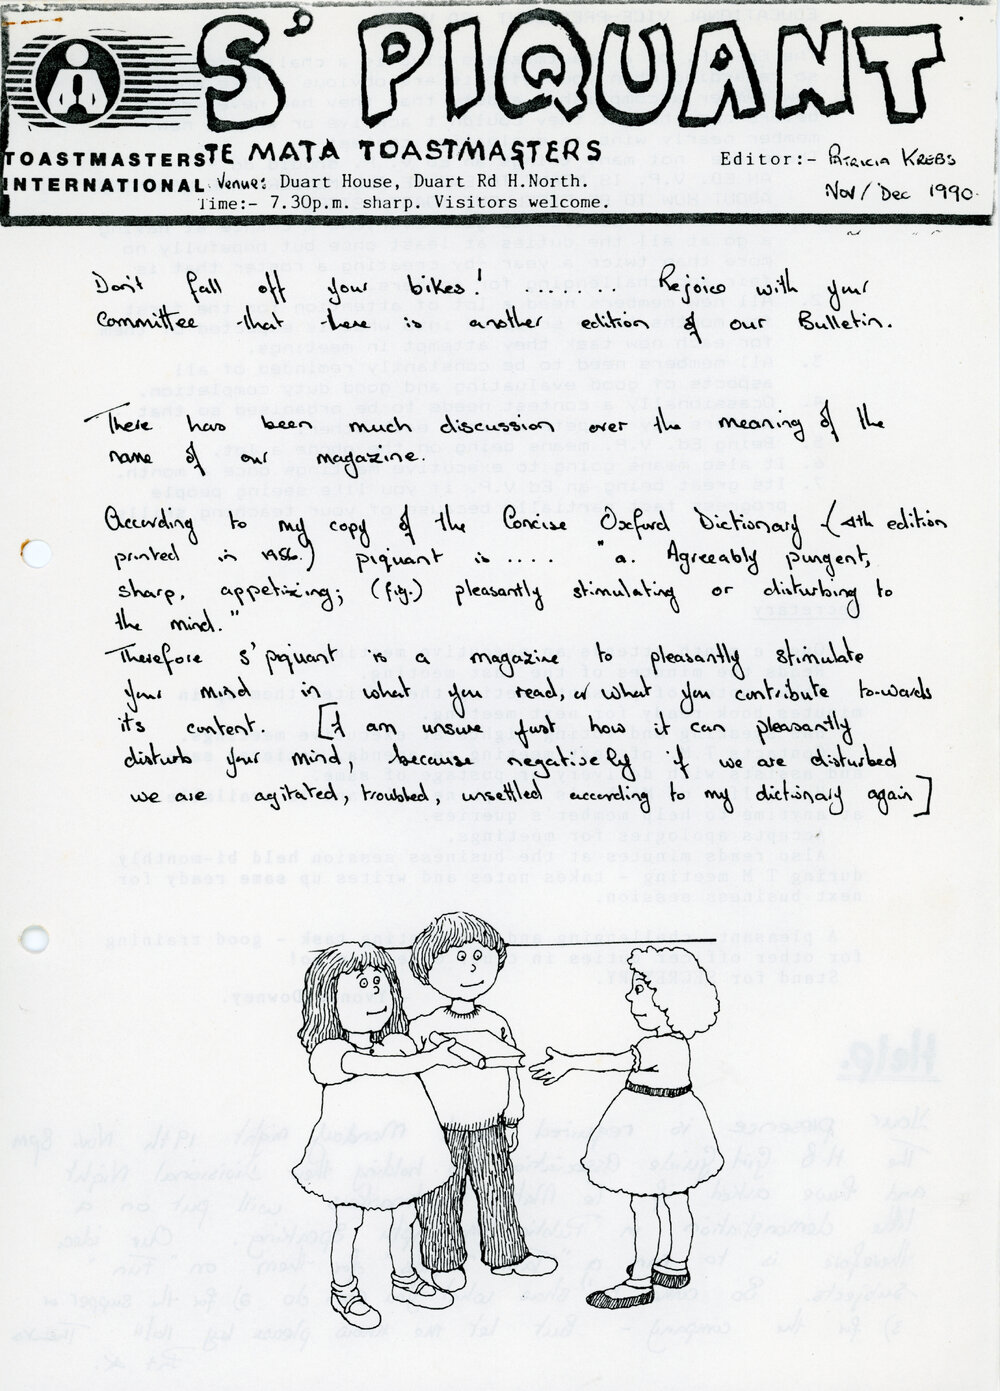 S' PIQUANT
TOASTMASTERS
INTERNATIONAL
TE MATA TOASTMASTERS
Venue: Duart House, Duart Rd H.North.
Time:- 7.30p.m. sharp. Visitors welcome.
Editor:- PATRICIA KREBS
Nov / Dec 1990
Don't fall off your bikes! ........ Rejoice with your
Committee that there is another edition of our Bulletin.
There has been much discussion over the meaning of the
name of our magazine.
According to my copy of the Concise Oxford Dictionary (4th edition
printed in 1956.) piquant is .... "a. Agreeably pungent,
sharp, appetizing; (fig.) pleasantly stimulating or disturbing to
the mind."
Therefore s'piquant is a magazine to pleasantly stimulate
your mind in what you read, or what you contribute to-wards
it's content. [I am unsure just how it can pleasantly
disturb your mind, because negatively if we are disturbed
we are agitated, troubled, unsettled according to my dictionary again]